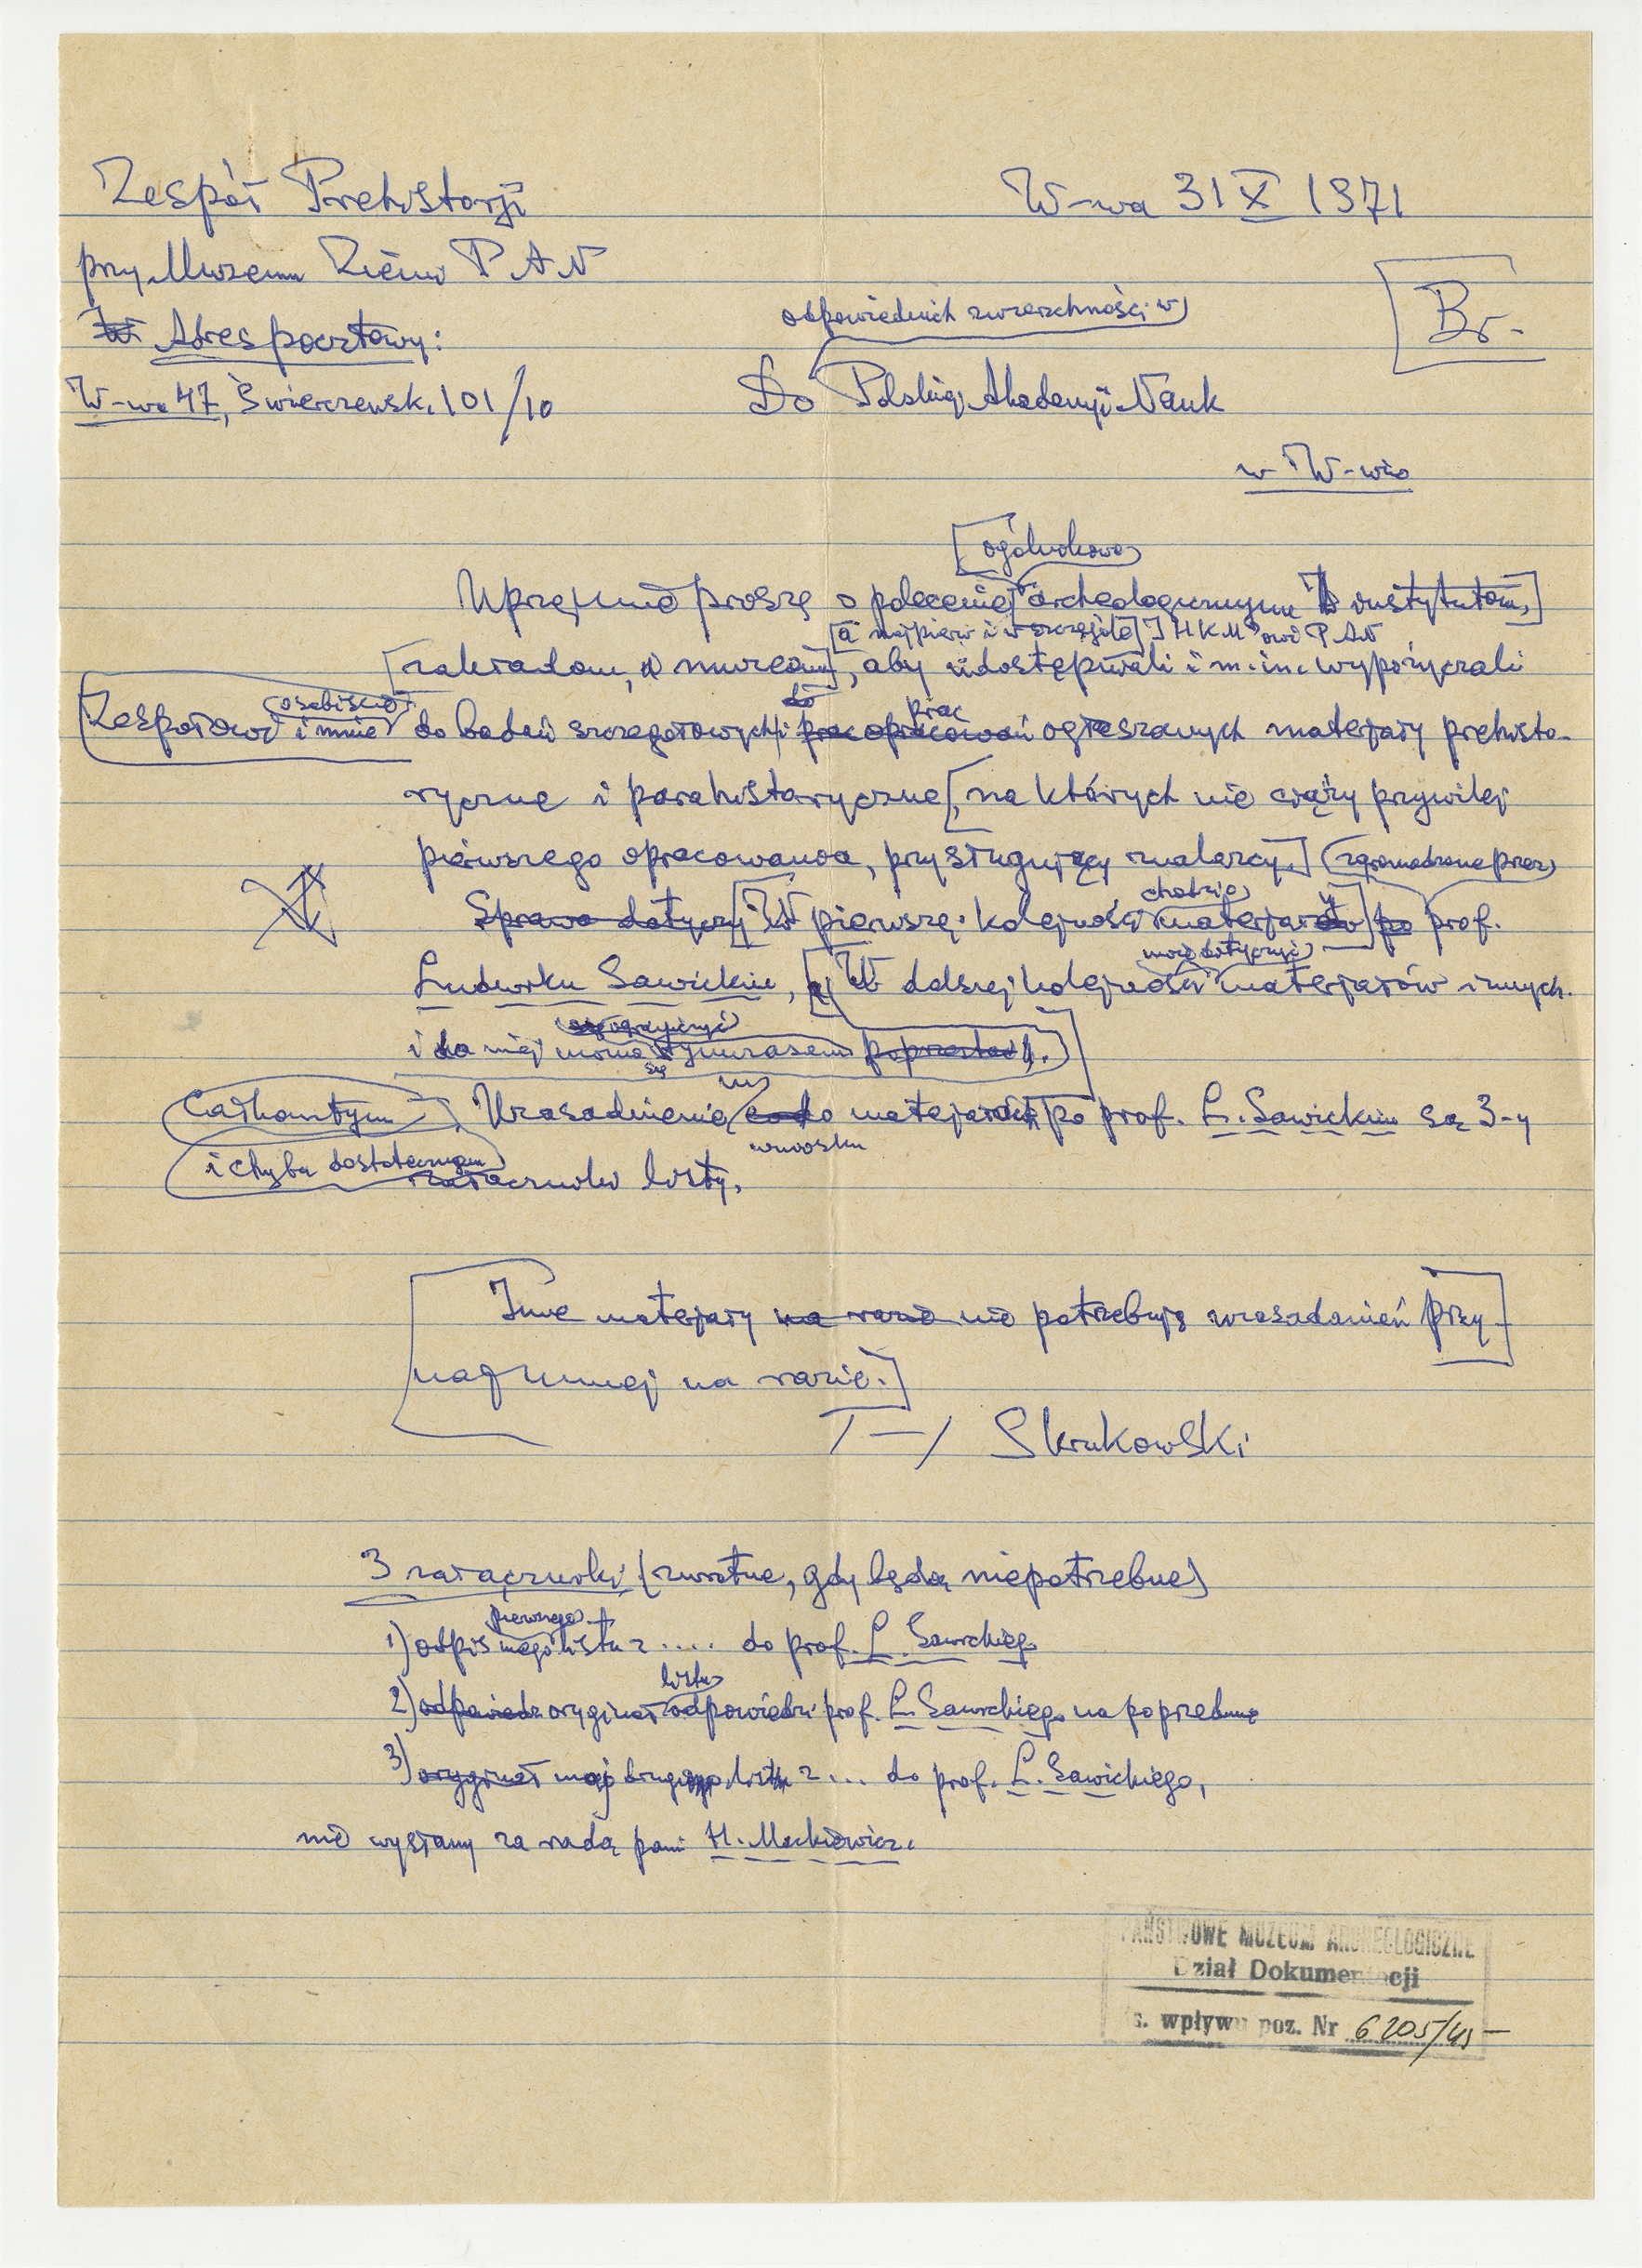 Zespół Prehistorji
W-wa 31 X 1971
przy Muzeum Ziemi PAN
Br.
Adres pocztowy:
odpowiednich zwierzchności w
W-wa 47, Świerczewsk. 101/10
Do Polskiej Akademji Nauk
w W-wie
[ogólnokrajowe]
Uprzejmie proszę o polecenie archeologicznym instytutom,]
[a najpierw i w szczególe] IHKM'owi PAN
[zakładom, i muzeom], aby udostępniali i m.in. wypożyczali
Zespołowi i mnie osobiście do badań szczegółowych i do prac opracowań prac ogłaszanych materjały prehisto-
ryczne i parahistoryczne [, na których nie ciąży przywilej
pierwszego opracowania, przysługujący znalazcy.] (zgromadzone przez)
Sprawa dotyczy [W pierwszej kolejności chodzi o materjały] po prof.
Ludwiku Sawickim, [a] W dalszej kolejności może dotyczyć materjałów innych.
i do niej można się ograniczyć tymczasem poprzestać].
Całkowitym Uzasadnieniem co do wniosku materjałów po prof. L. Sawickim są 3-y
i chyba dostatecznym załączniki listy.
[Inne materjały na razie nie potrzebują uzasadnień przy-
najmniej na razie.]
/—/ Skrukowski
3 załączniki (zwrotne, gdy będą niepotrzebne)
1) odpis mego pierwszego listu z .... do prof. L. Sawickiego
2) odpowiedź oryginał listu odpowiedzi prof. L. Sawickiego na poprzednie
3) oryginał mój drugi list z ... do prof. L. Sawickiego,
nie wysłany za radą pani H. Mackiewicz.
PAŃSTWOWE MUZEUM ARCHEOLOGICZNE
Dział Dokumentacji
s. wpływu poz. Nr 6205/45